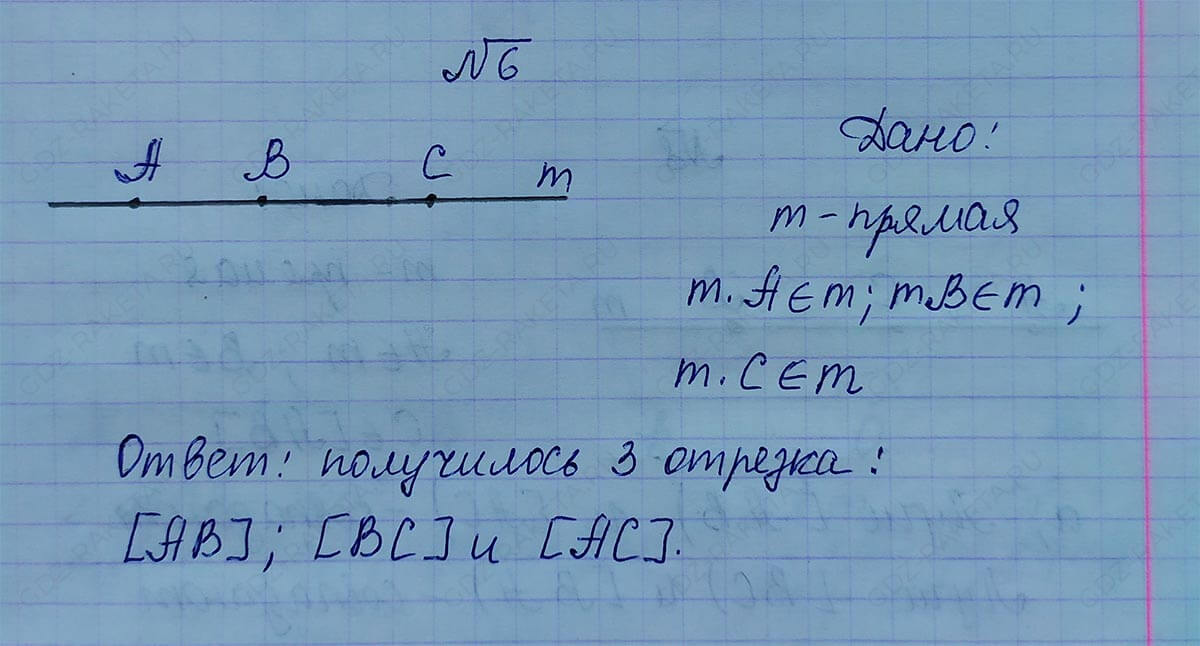 №6
A B C m
Дано:
m - прямая
т. A ∈ m; т B ∈ m ;
т. C ∈ m
Ответ: получилось 3 отрезка:
[AB]; [BC] и [AC].
GDZ-RAKETA.RU